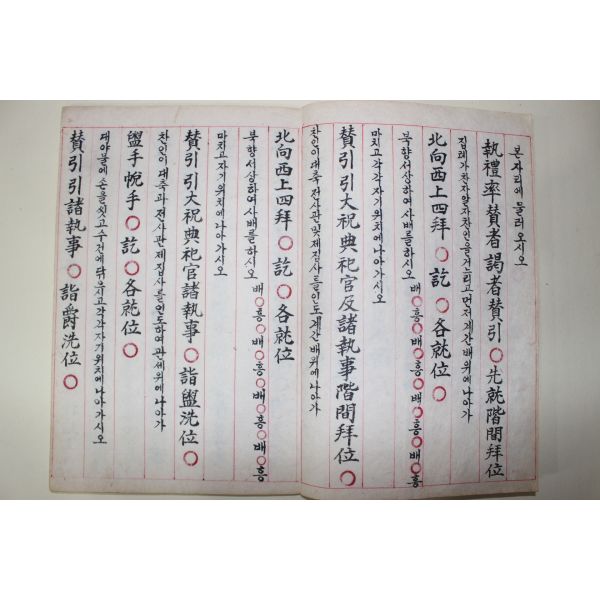 본자리에 물러오시오
執禮率贊者謁者贊引○先就階間拜位
집례가 찬자알자찬인을 거느리고 먼저 계간 배위에 나아가
北向西上四拜○訖○各就位○
북향서상하여 사배를 하시오 배○흥○배○흥○배○흥○배○흥
마치고 각각 자기 위치에 나아가시오
贊引引大祝典祀官及諸執事階間拜位○
찬인이 대축 전사관 및 제집사들을 인도 계간 배위에 나아가
北向西上四拜○訖○各就位
북향서상하여 사배를 하시오 배○흥○배○흥○배○흥○배○흥
마치고 자기 위치에 나아가시오
贊引引大祝典祀官諸執事○詣盥洗位○
찬인이 대축과 전사관 제집사를 인도하여 관세위에 나아가
盥手帨手○訖○各就位○
대야물에 손을 씻고 수건에 닦으시고 각각 자기 위치에 나아가시오
贊引引諸執事○詣爵洗位○